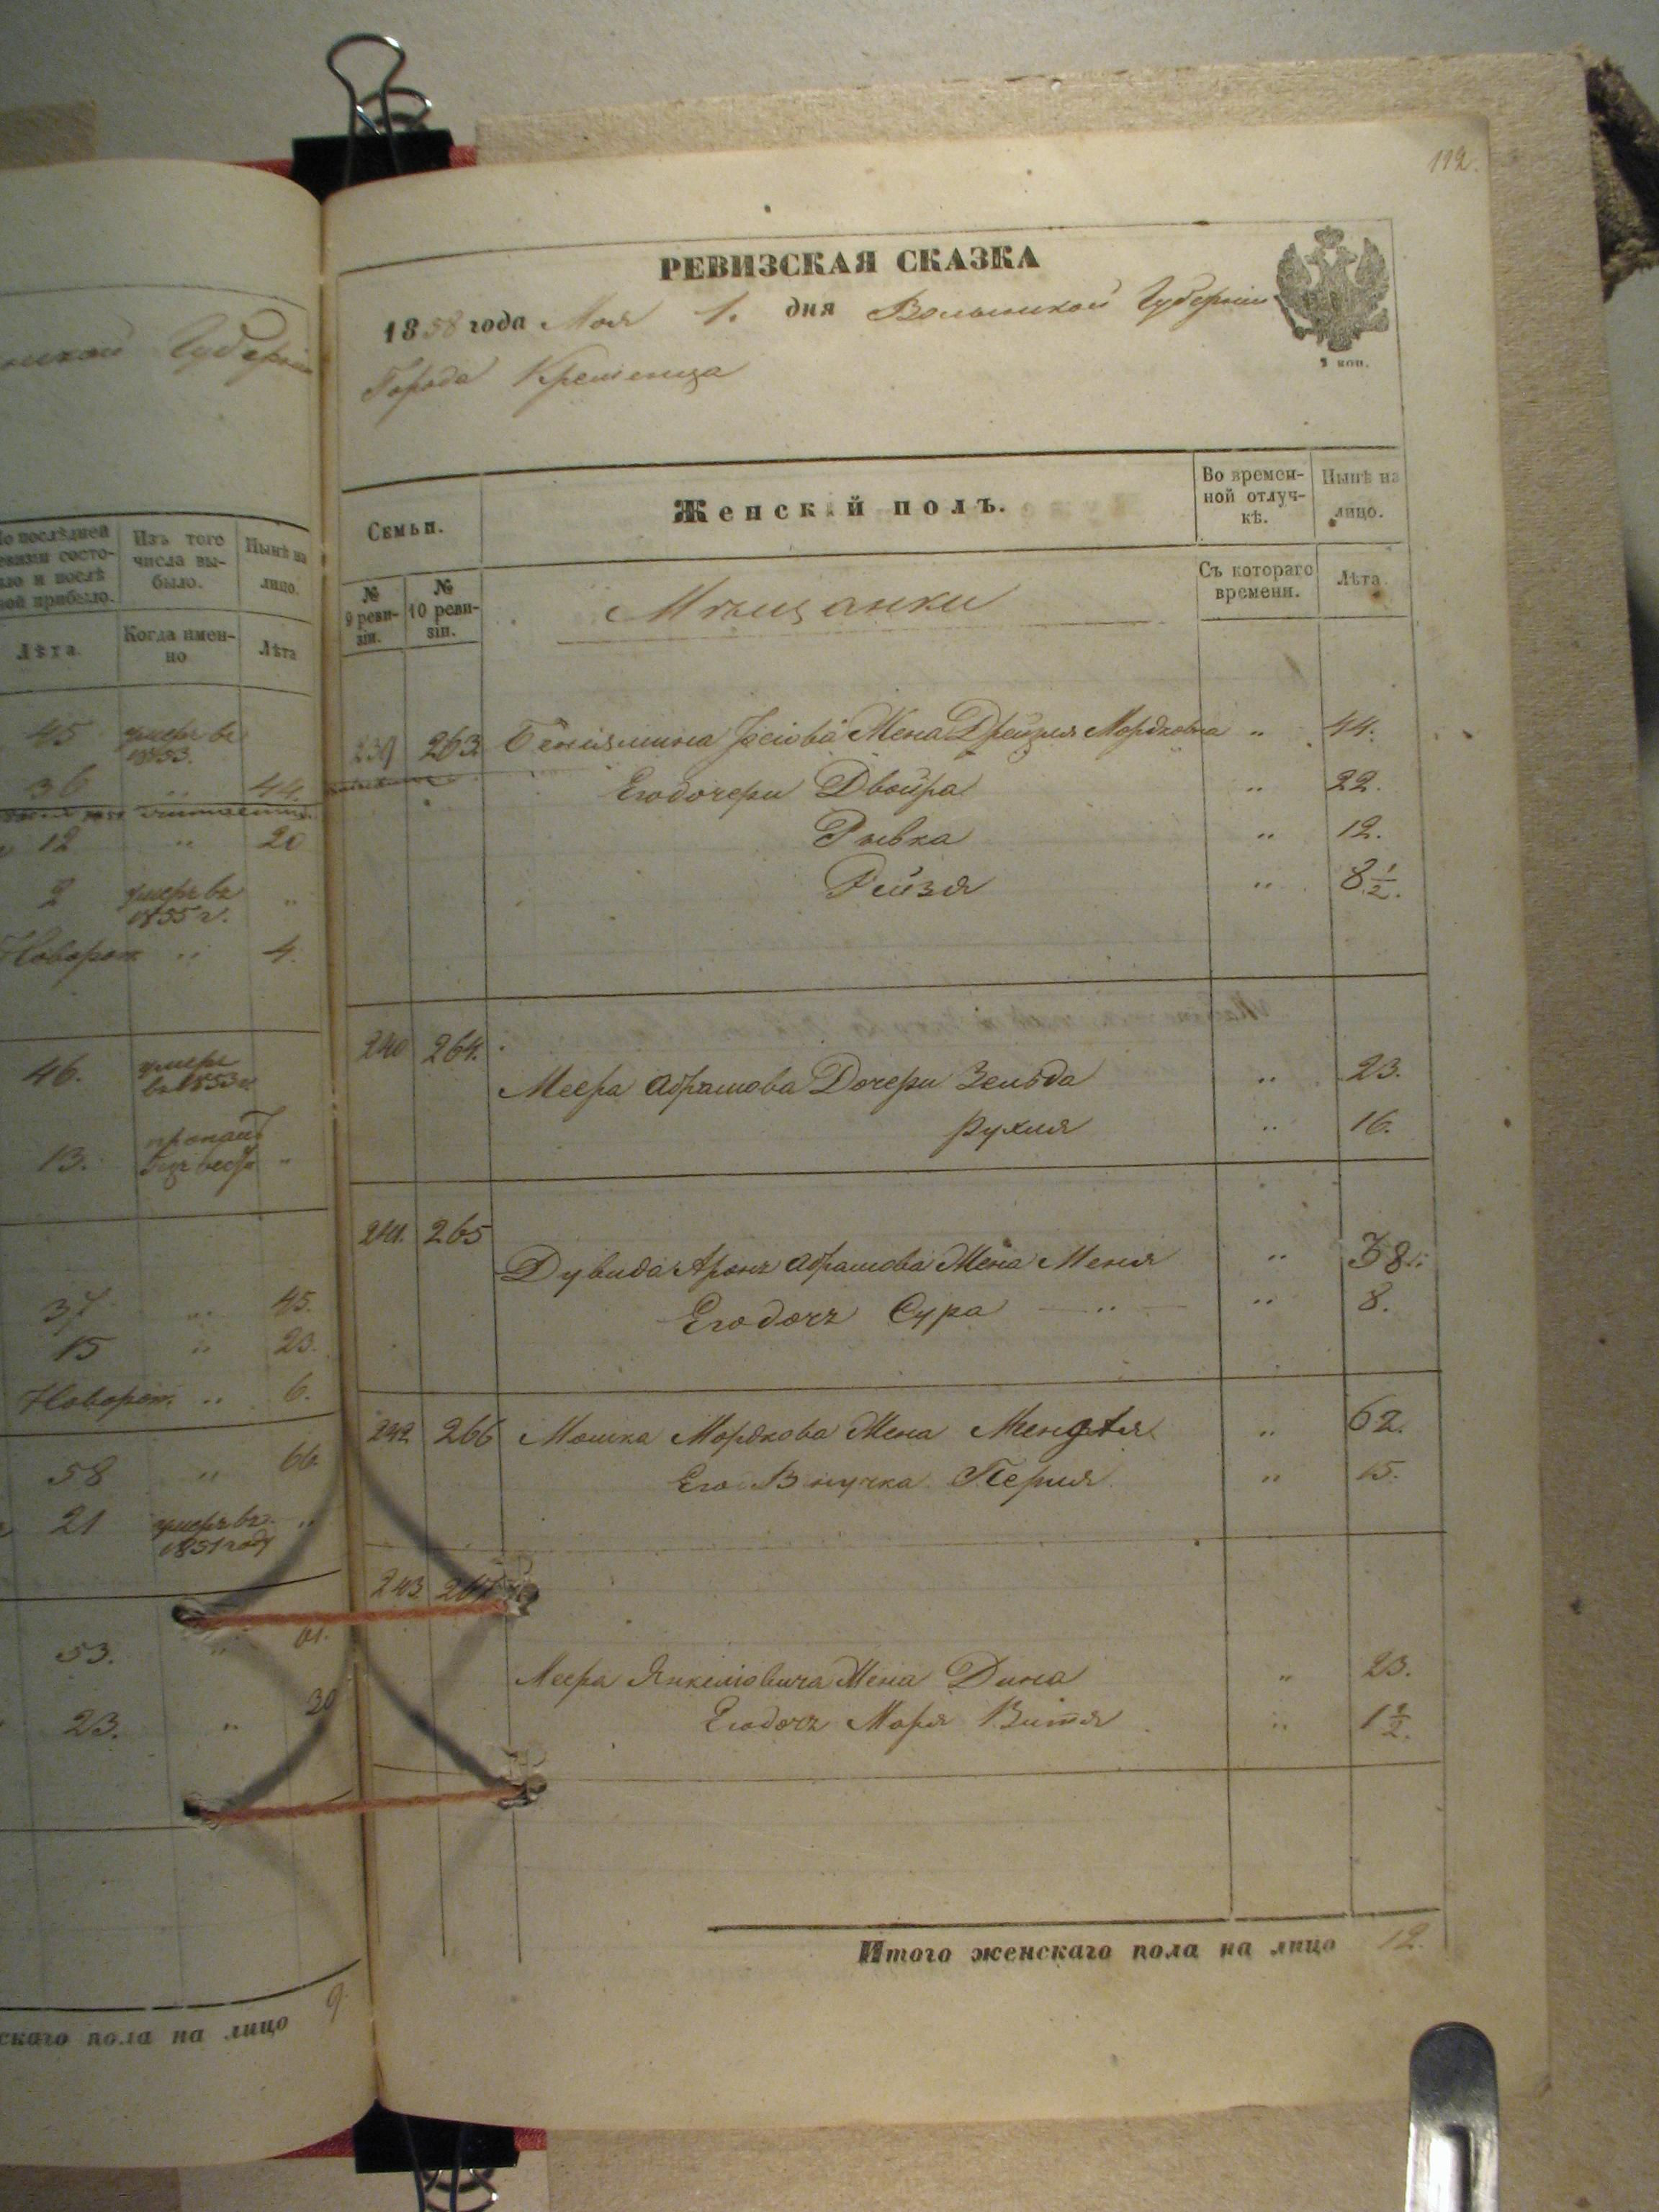 нской Губерніи
По послѣдней ревизіи состояло и послѣ той прибыло.
Изъ того числа выбыло.
Нынѣ на лицо.
Лѣта.
Когда именно
Лѣта
45 умеръ въ 1853.
36 " 44.
12 " 20
2 умеръ въ 1855 г. "
Новорож " 4.
46. умеръ въ 1853 г.
13. "
37 " 45.
15 " 23.
Новорож. " 6.
58 " 66.
21 умеръ въ 1851 году "
53. " 61.
23. " 30
скаго пола на лицо 9
112.
РЕВИЗСКАЯ СКАЗКА
1858 года Мая 1. дня Волынской Губерніи
Города Кременца
Семьи.
Женскій полъ.
Во временной отлучкѣ.
Нынѣ на лицо.
№ 9 ревизіи.
№ 10 ревизіи.
Мѣщанки
Съ котораго времени.
Лѣта.
239 263 Беніямина Іосіова Жена Дрейзля Мордковна " 44.
Его дочери Двойра " 22.
Рывка " 12.
Рейзя " 8 1/2.
240 264.
Меера Абрамова Дочери Зельда " 23.
Рухля " 16.
241. 265
Дувида Аронъ Абрамова Жена Меня " 38.
Его дочь Сура " " 8.
242 266 Мошка Мордкова Жена " 62.
Его Внучка Перля " 15.
243 267
Меера Янкеліовича Жена Дина " 23.
Его дочь Маря Витя " 1 1/2.
Итого женскаго пола на лицо 12.